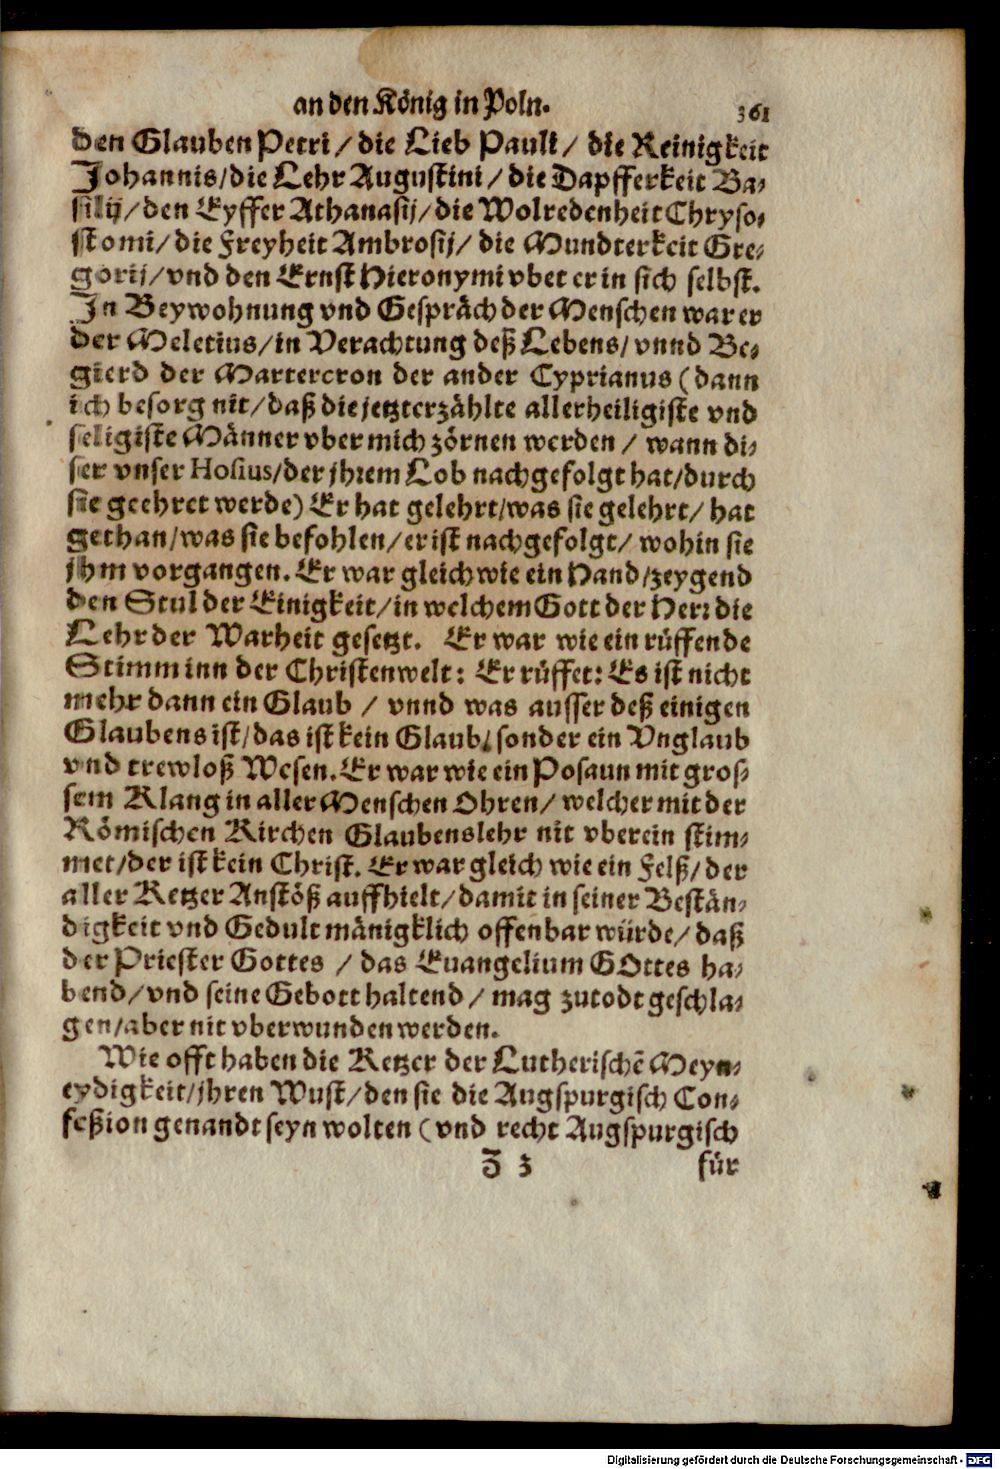 an den König in Poln.
361
den Glauben Petri / die Lieb Pauli / die Reinigkeit
Johannis/die Lehr Augustini / die Dapfferkeit Ba-
silij/den Eyffer Athanasij/die Wolredenheit Chryso-
stomi/die Freyheit Ambrosij/ die Mundterkeit Gre-
gorij/vnd den Ernst Hieronymi vbet er in sich selbst.
In Beywohnung vnd Gespräch der Menschen war er
der Meletius/in Verachtung deß Lebens/ vnnd Be-
gierd der Martercron der ander Cyprianus (dann
ich besorg nit/daß die jetzterzählte allerheiligiste vnd
seligiste Männer vber mich zörnen werden / wann di-
ser vnser Hosius/der jhrem Lob nachgefolgt hat/durch
sie geehret werde) Er hat gelehrt/was sie gelehrt/ hat
gethan/was sie befohlen/er ist nachgefolgt/ wohin sie
jhm vorgangen. Er war gleich wie ein Hand/zeygend
den Stul der Einigkeit/in welchem Gott der Herr die
Lehr der Warheit gesetzt. Er war wie ein rüffende
Stimm inn der Christenwelt: Er rüffet: Es ist nicht
mehr dann ein Glaub / vnnd was ausser deß einigen
Glaubens ist/das ist kein Glaub/sonder ein Vnglaub
vnd trewloß Wesen. Er war wie ein Posaun mit gros-
sem Klang in aller Menschen Ohren/ welcher mit der
Römischen Kirchen Glaubenslehr nit vberein stim-
met/der ist kein Christ. Er war gleich wie ein Felß/der
aller Ketzer Anstöß auffhielt/damit in seiner Bestän-
digkeit vnd Gedult mänigklich offenbar würde/daß
der Priester Gottes / das Euangelium GOttes ha-
bend/vnd seine Gebott haltend / mag zutodt geschla-
gen/aber nit vberwunden werden.
Wie offt haben die Ketzer der Lutherischẽ Meyn-
eydigkeit/jhren Wust/den sie die Augspurgisch Con-
feßion genandt seyn wolten (vnd recht Augspurgisch
Z 3
für
Digitalisierung gefördert durch die Deutsche Forschungsgemeinschaft - DFG